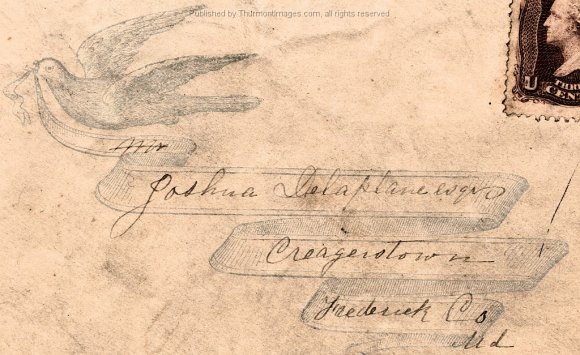 Published by Thurmontimages.com, all rights reserved
Mr
Joshua Delaplane esqr
Creagerstown
Frederick Co
Md
U
CENT